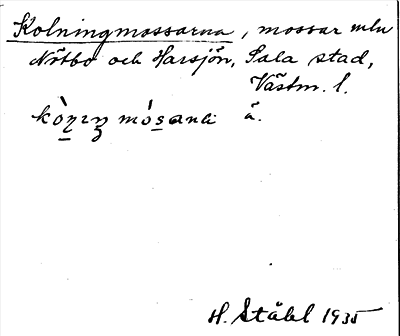 Kolningmossarna, mossar mln
Nötbo och Harsjön, Sala stad,
Västm. l.
å.
H. Ståhl 1935